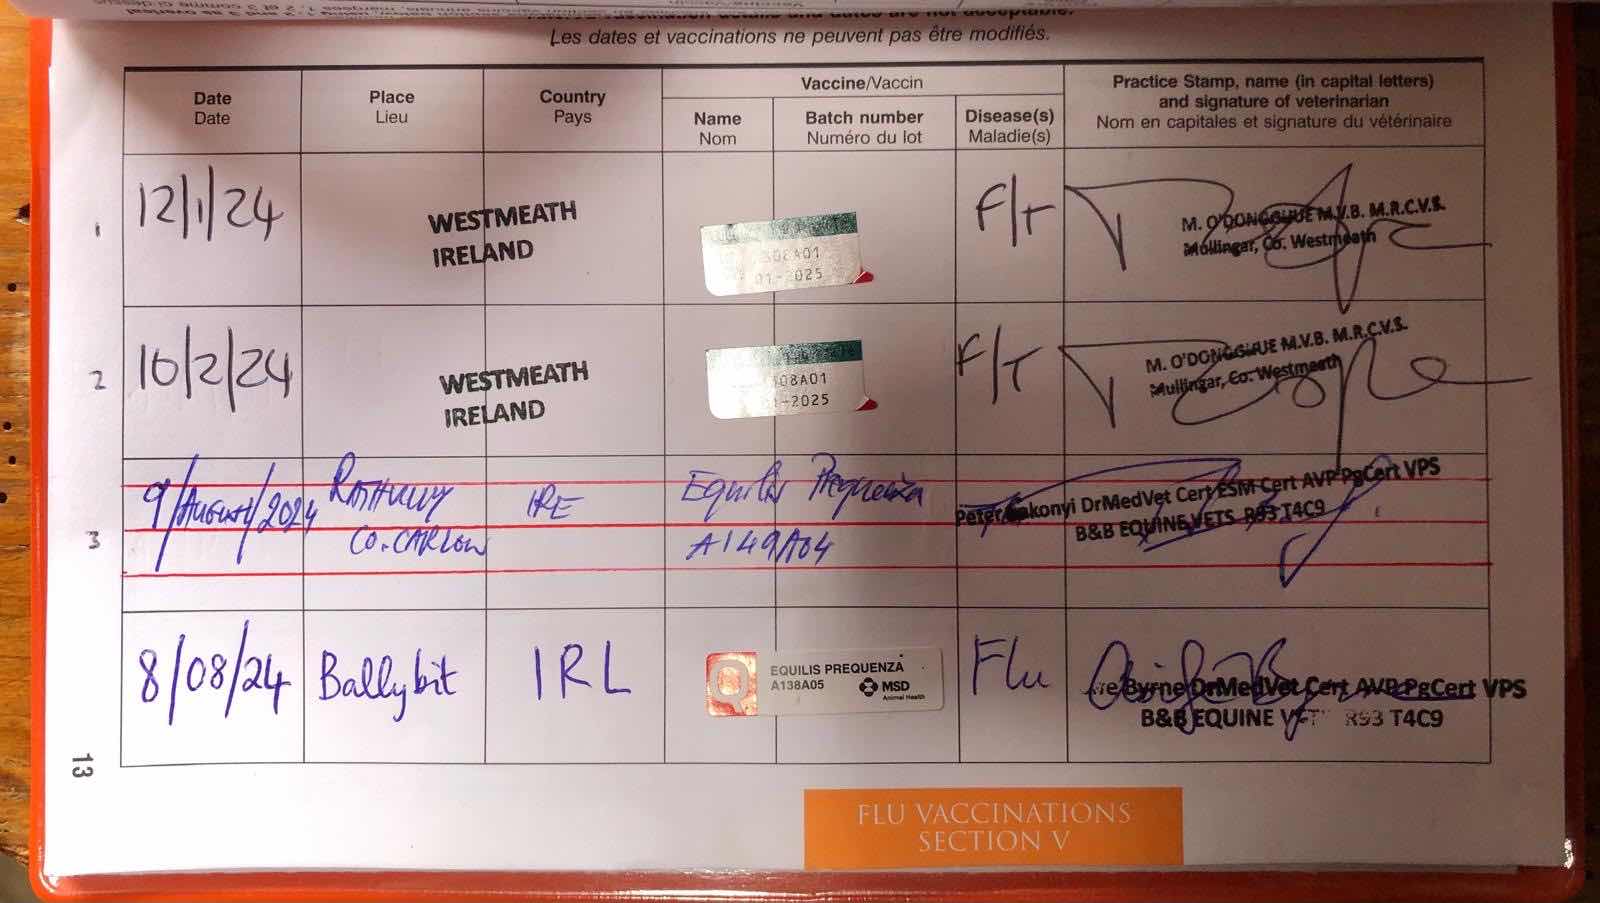 Les dates et vaccinations ne peuvent pas être modifiés.
Date
Date
Place
Lieu
Country
Pays
Vaccine/Vaccin
Name
Nom
Batch number
Numéro du lot
Disease(s)
Maladie(s)
Practice Stamp, name (in capital letters)
and signature of veterinarian
Nom en capitales et signature du vétérinaire
1
12/1/24
WESTMEATH
IRELAND
308A01
01-2025
F/T
M. O'DONOGHUE M.V.B. M.R.C.V.S.
Mullingar, Co. Westmeath
2
10/2/24
WESTMEATH
IRELAND
08A01
-2025
F/T
M. O'DONOGHUE M.V.B. M.R.C.V.S.
Mullingar, Co. Westmeath
3
9/August/2024
Co. CARLOW
IRE
Equilis Prequenza
A149A04
Peter DrMedVet Cert ESM Cert AVP PgCert VPS
B&B EQUINE VETS R93 T4C9
8/08/24
Ballybit
IRL
EQUILIS PREQUENZA
A138A05
MSD
Animal Health
Flu
Byrne DrMedVet Cert AVP PgCert VPS
B&B EQUINE R93 T4C9
13
FLU VACCINATIONS
SECTION V